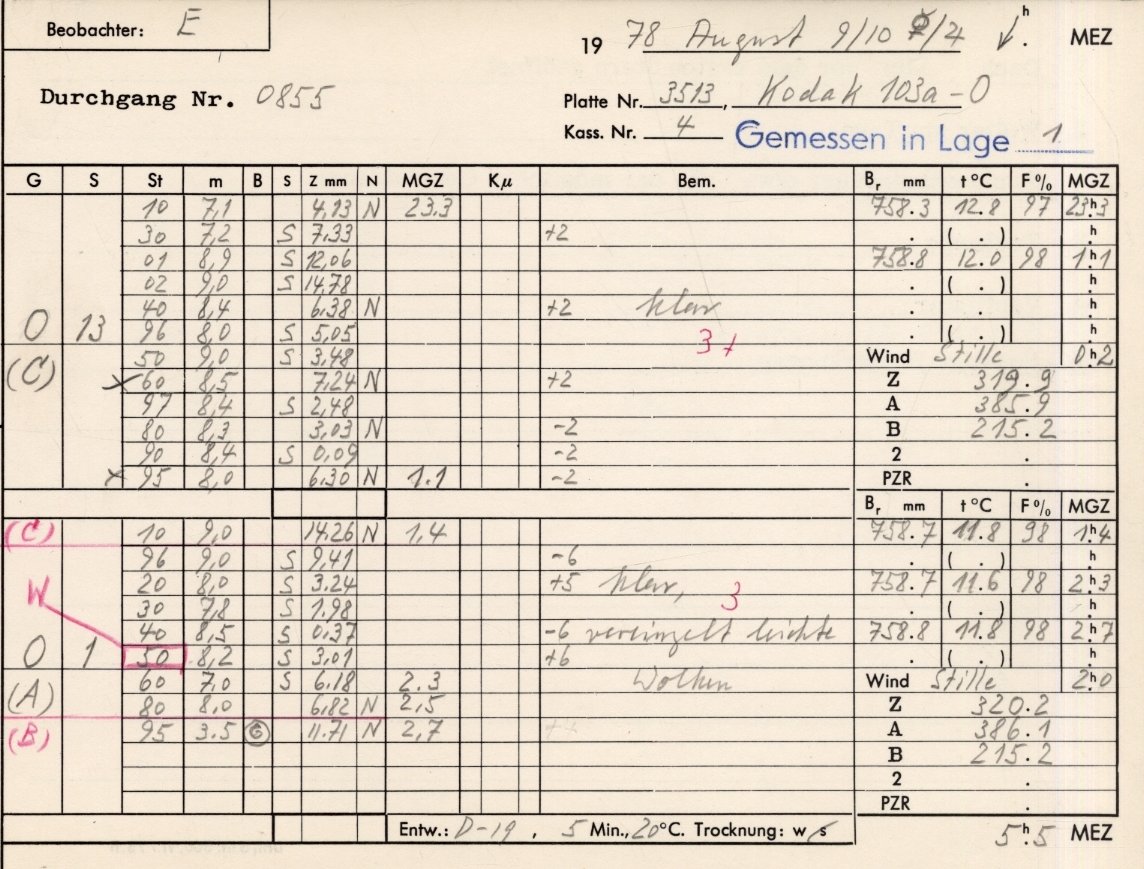 Beobachter: E
19 78 August 9/10 ♀/4 h . MEZ
Durchgang Nr. 0855
Platte Nr. 3513, Kodak 103a-O
Kass. Nr. 4 Gemessen in Lage 1
G S St m B S Z mm N MGZ Kμ Bem. Br mm t°C F% MGZ
10 7,1 4,13 N 23.3 758.3 12.8 97 23h3
30 7,2 S 7.33 +2 . ( . ) h
01 8,9 S 12,06 758.8 12.0 98 1h1
02 9,0 S 14,78 . ( . ) h
40 8,4 6,38 N +2 klar . . h
O 13 96 8,0 S 5,05 3+ . ( . ) h
50 9,0 S 3,48 Wind Stille 0h2
(C) x 60 8,5 7,24 N +2 Z 319.9
97 8,4 S 2,48 A 385.9
80 8,3 3,03 N -2 B 215.2
90 8,4 S 0,09 -2 2 .
x 95 8,0 6,30 N 1.1 -2 PZR .
Br mm t°C F% MGZ
(C) 10 9,0 14,26 N 1,4 758.7 11.8 98 1h4
96 9,0 S 9,41 -6 . ( . ) h
W 20 8,0 S 3.24 +5 klar, 758.7 11.6 98 2h3
30 7,8 S 1,98 3 . ( . ) h
40 8,5 S 0,37 -6 vereinzelt leichte 758.8 11.8 98 2h7
O 1 50 8,2 S 3,01 +6 . ( . ) h
(A) 60 7,0 S 6,18 2.3 Wolken Wind Stille 2h0
80 8,0 6,82 N 2,5 Z 320.2
(B) 95 3.5 G 11.71 N 2,7 A 386.1
B 215.2
2 .
PZR .
Entw.: D-19 , 5 Min., 20°C. Trocknung: w/s 5h5 MEZ